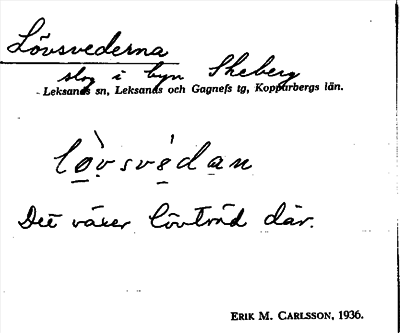 Lövsvederna
slog i byn Skeberg
Leksands sn, Leksands och Gagnefs tg, Kopparbergs län.
lò̠vsvèdan
Det växer lövträd där.
ERIK M. CARLSSON, 1936.